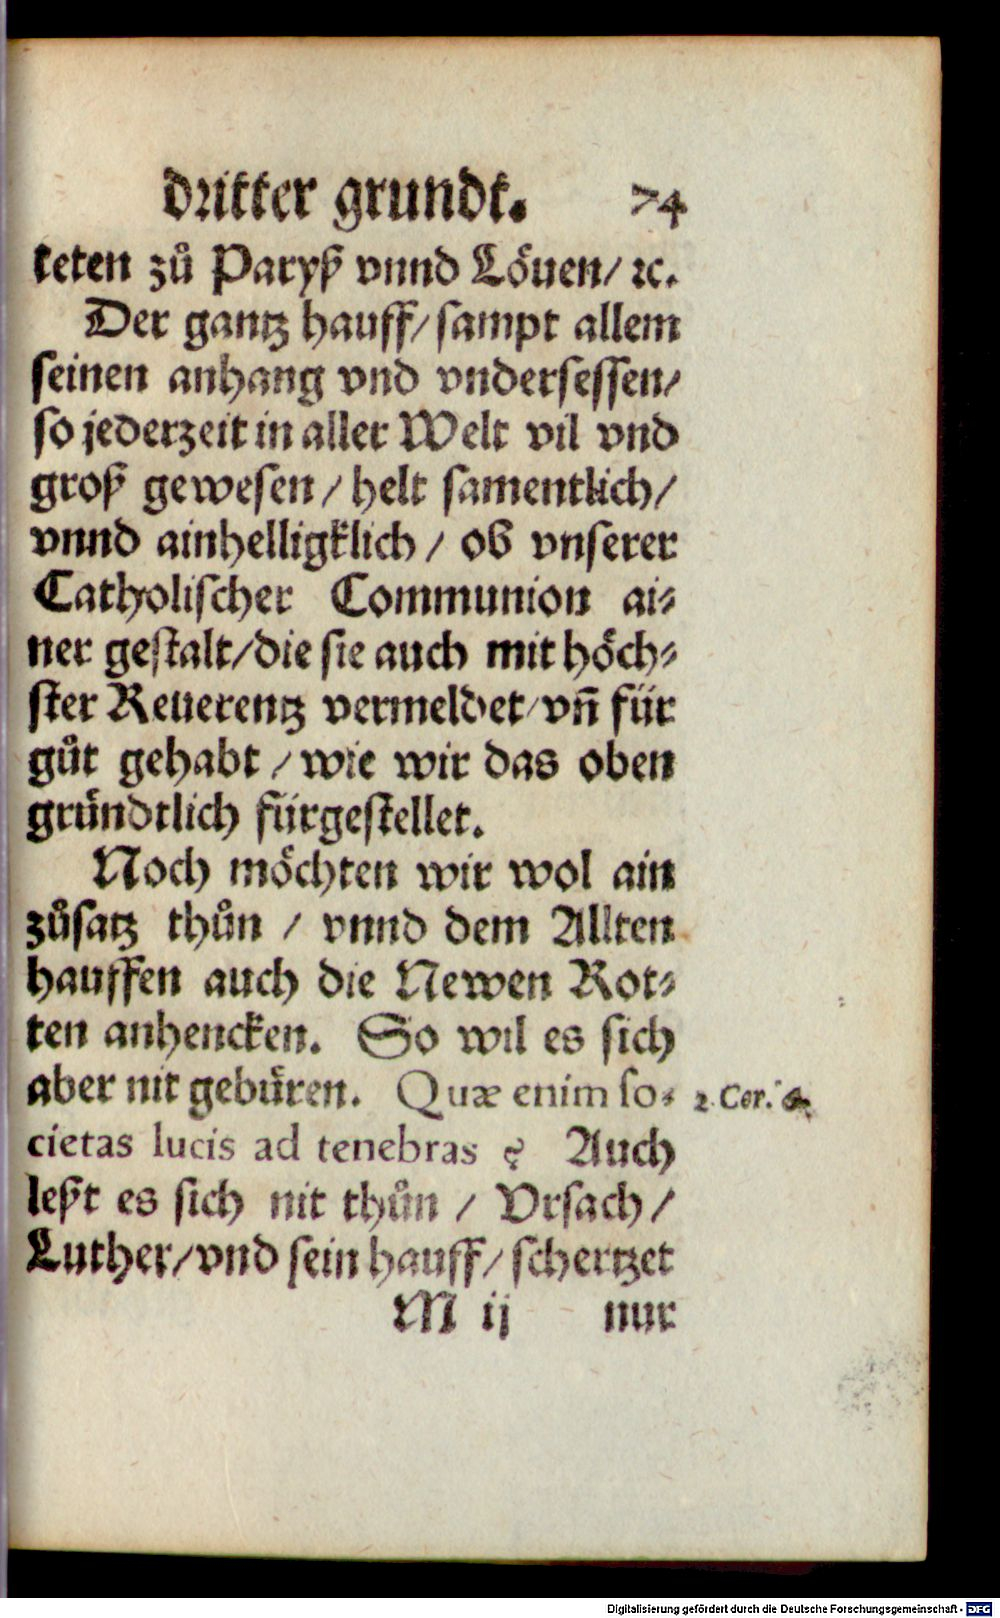 dritter grundt. 74
teten zů Paryß vnnd Löuen/ ꝛc.
Der gantz hauff/ sampt allem
seinen anhang vnd vndersessen/
so jederzeit in aller Welt vil vnd
groß gewesen / helt samentlich/
vnnd ainhelligklich / ob vnserer
Catholischer Communion ai⸗
ner gestalt/die sie auch mit höch⸗
ster Reuerentz vermeldet/vñ für
gůt gehabt / wie wir das oben
gründtlich fürgestellet.
Noch möchten wir wol ain
zůsatz thůn / vnnd dem Allten
hauffen auch die Newen Rot⸗
ten anhencken. So wil es sich
aber nit gebüren. Quæ enim so⸗ 2. Cor. 6.
cietas lucis ad tenebras ? Auch
leßt es sich nit thůn / Vrsach/
Luther/vnd sein hauff/ schertzet
M ij nur
Digitalisierung gefördert durch die Deutsche Forschungsgemeinschaft - DFG